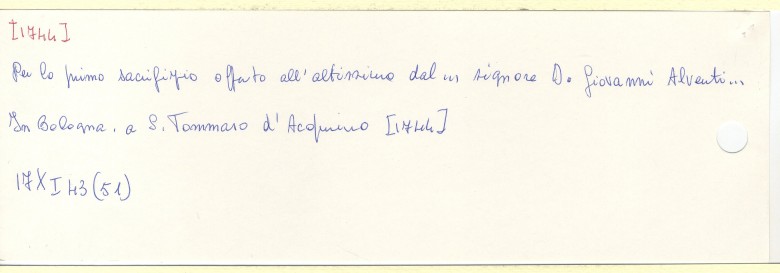 [1744]
Per lo primo sacrifizio offerto all'altissimo dal ... signore D. Giovanni Alventi...
In Bologna. a S. Tommaso d'Acquino [1744]
17 X I 43 (51)